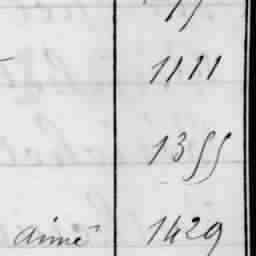 1111
1355
aimé 1429